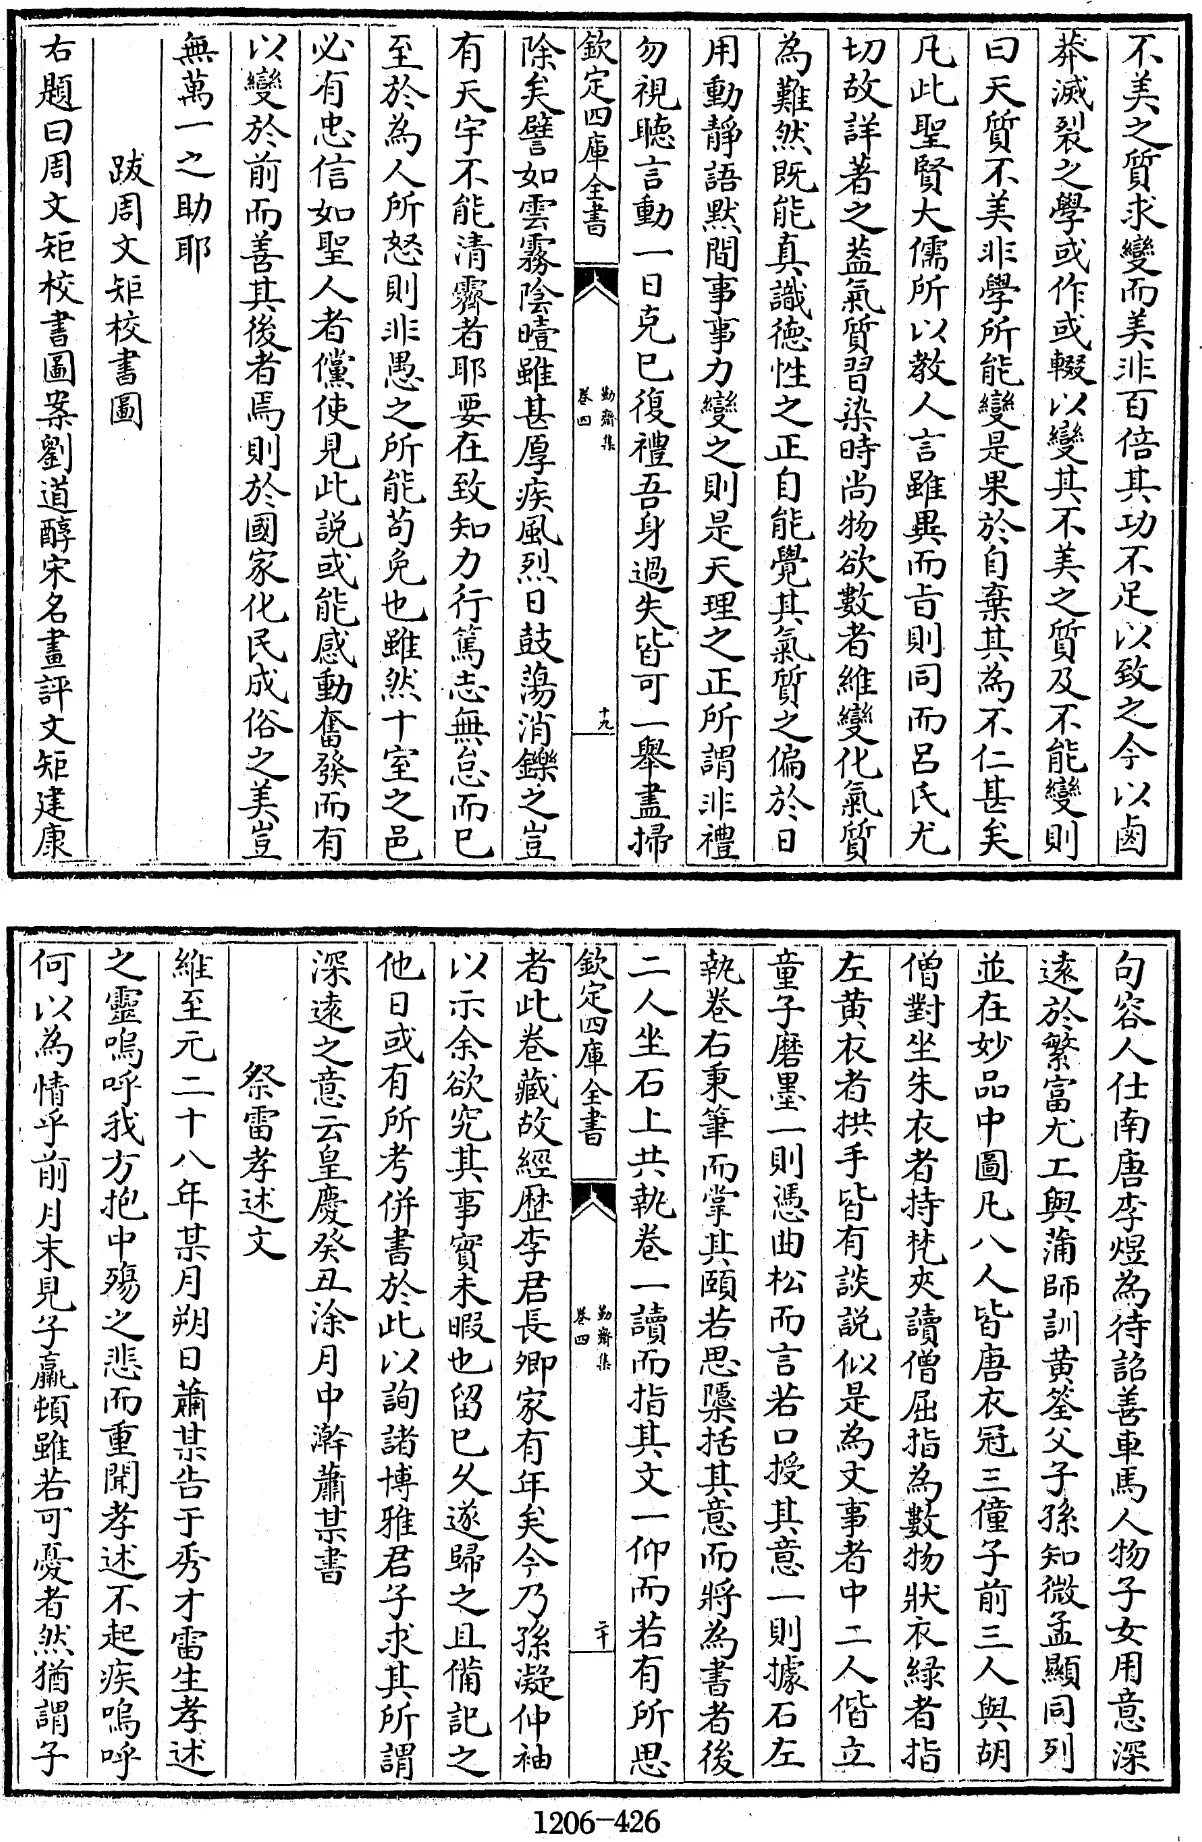 不美之質求變而美非百倍其功不足以致之今以鹵
莽滅裂之學或作或輟以變其不美之質及不能變則
曰天質不美非學所能變是果於自棄其為不仁甚矣
凡此聖賢大儒所以教人言雖異而㫖則同而呂氏尤
切故詳著之葢氣質習染時尚物欲數者維變化氣質
為難然既能真識徳性之正自能覺其氣質之偏於日
用動靜語黙間事事力變之則是天理之正所謂非禮
勿視聴言動一日克已復禮吾身過失皆可一舉盡掃
欽定四庫全書
勤齋集
卷四
十九
除矣譬如雲霧陰曀雖甚厚疾風烈日鼓蕩消鑠之豈
有天宇不能清霽者耶要在致知力行篤志無怠而已
至於為人所怒則非愚之所能茍免也雖然十室之邑
必有忠信如聖人者儻使見此説或能感動奮發而有
以變於前而善其後者焉則於國家化民成俗之美豈
無萬一之助耶
跋周文矩校書圖
右題曰周文矩校書圖案劉道醇宋名畫評文矩建康
句容人仕南唐李煜為待詔善車馬人物子女用意深
遠於繁富尤工與蒲師訓黄筌父子孫知微孟顯同列
並在妙品中圖凡八人皆唐衣冠三僮子前三人與胡
僧對坐朱衣者持梵夾讀僧屈指為數物狀衣緑者指
左黄衣者拱手皆有談説似是為文事者中二人偕立
童子磨墨一則憑曲松而言若口授其意一則據石左
執卷右秉筆而掌其頤若思櫽括其意而將為書者後
二人坐石上共執卷一讀而指其文一仰而若有所思
欽定四庫全書
勤齋集
卷四
二十
者此卷藏故經歴李君長卿家有年矣今乃孫凝仲袖
以示余欲究其事實未暇也留已久遂歸之且備記之
他日或有所考併書於此以詢諸博雅君子求其所謂
深遠之意云皇慶癸丑涂月中澣蕭某書
祭雷孝述文
維至元二十八年某月朔日蕭某告于秀才雷生孝述
之靈嗚呼我方抱中殤之悲而重聞孝述不起疾嗚呼
何以為情乎前月末見子羸頓雖若可憂者然猶謂子
1206-426